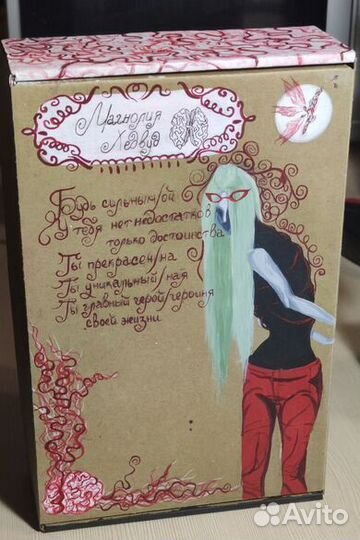 Магнолия
Хедвуд
Будь сильным/ой
У тебя нет недостатков
только достоинства
Ты прекрасен/на
Ты уникальный/ная
Ты главный герой/героиня
своей жизни
Avito